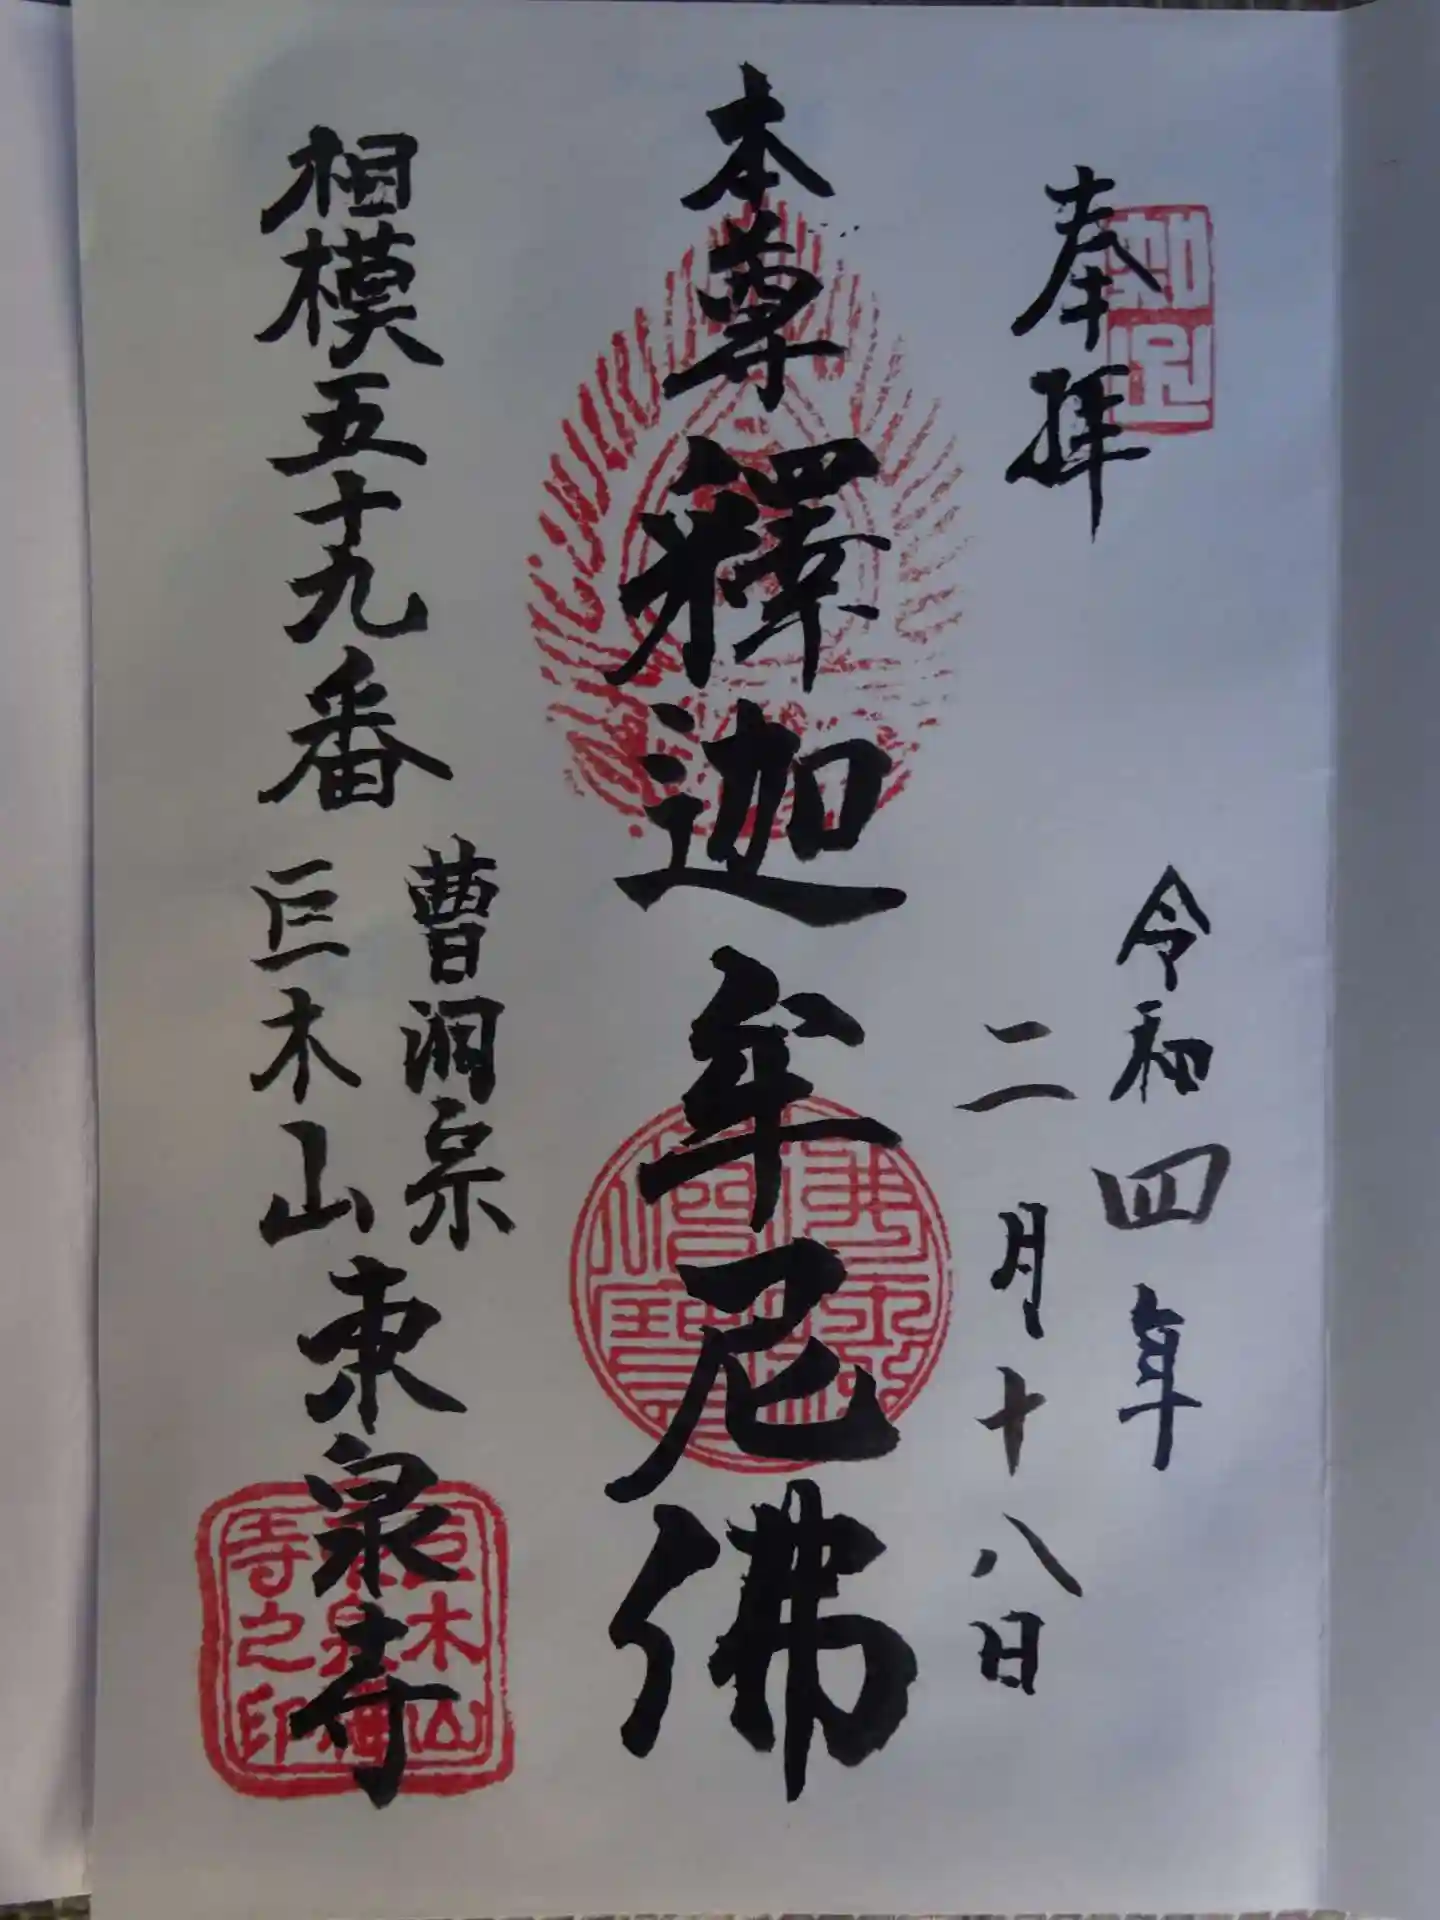 奉拝
令和四年
二月十八日
本尊釋迦牟尼佛
相模五十九番
曹洞宗
巨木山
東泉寺
佛法僧寶
巨木山東泉禅寺之印